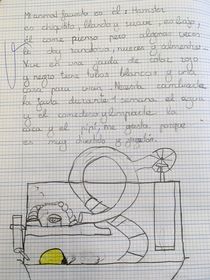 Mi animal favorito es: el: Hamster
es chiquitito, blando y suave, es bajo,
él come pienso pero algunas veces
le doy zanahoria, nueces y almendras.
Vive en una jaula de color rojo
y negro tiene tubos blancos y una
casa para vivir. Necesita cambiarle
la jaula durante 1 semana el agua
y el comedero y limpiarle la
caca y el pipí, me gusta porque
es muy divertido y juguetón.